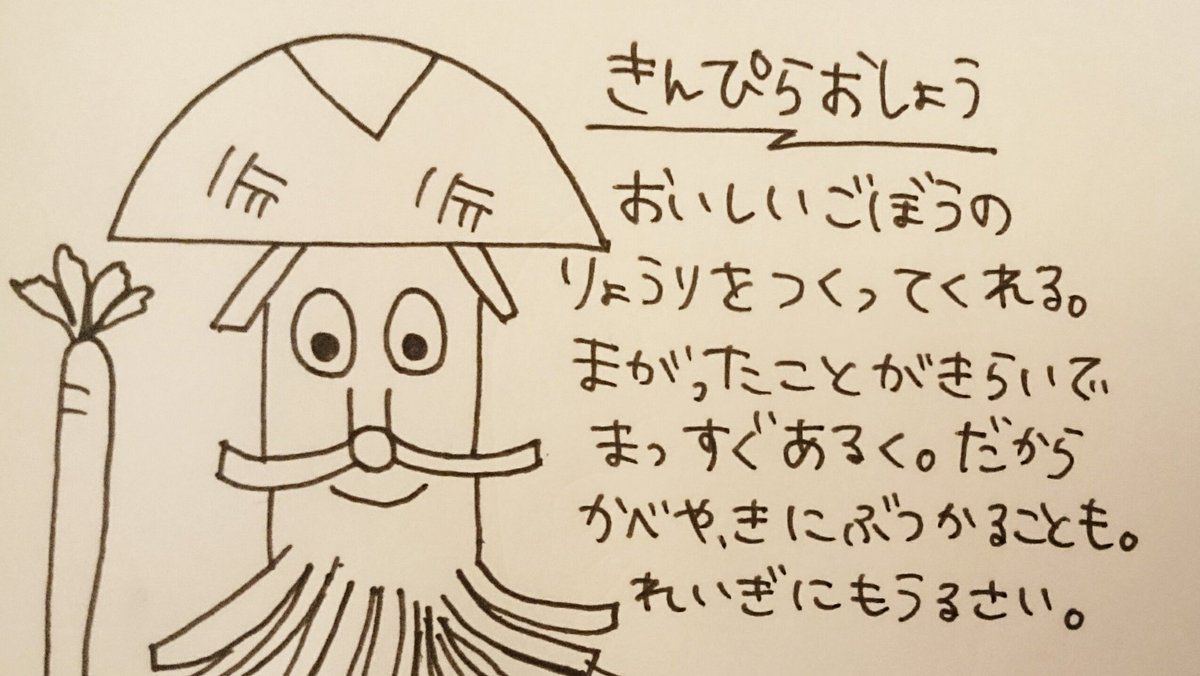 きんぴらおしょう
おいしいごぼうの
りょうりをつくってくれる。
まがったことがきらいで
まっすぐあるく。だから
かべや、きにぶつかることも。
れいぎにもうるさい。